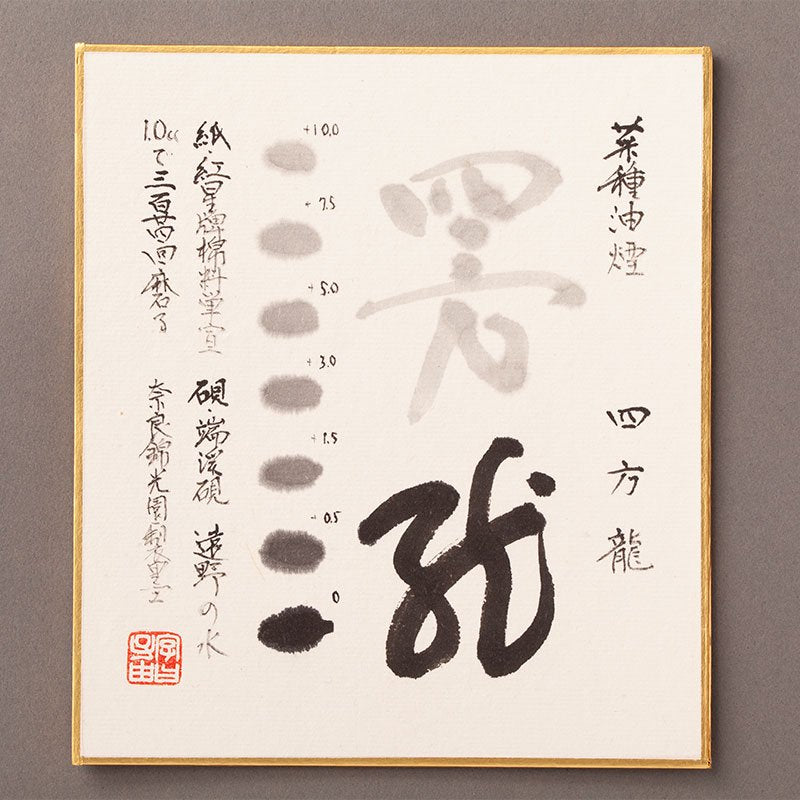 菜種油煙　四方龍
四方
龍
+10.0
+7.5
+5.0
+3.0
+1.5
+0.5
0
紙・紅星牌棉料単宣　硯・端渓硯　遠野の水
1.0ccで三百廿四回磨る　奈良錦光園製墨